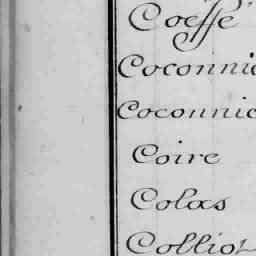 Coeffé
Coconnie
Coconnie
Coire
Colas
Colliot